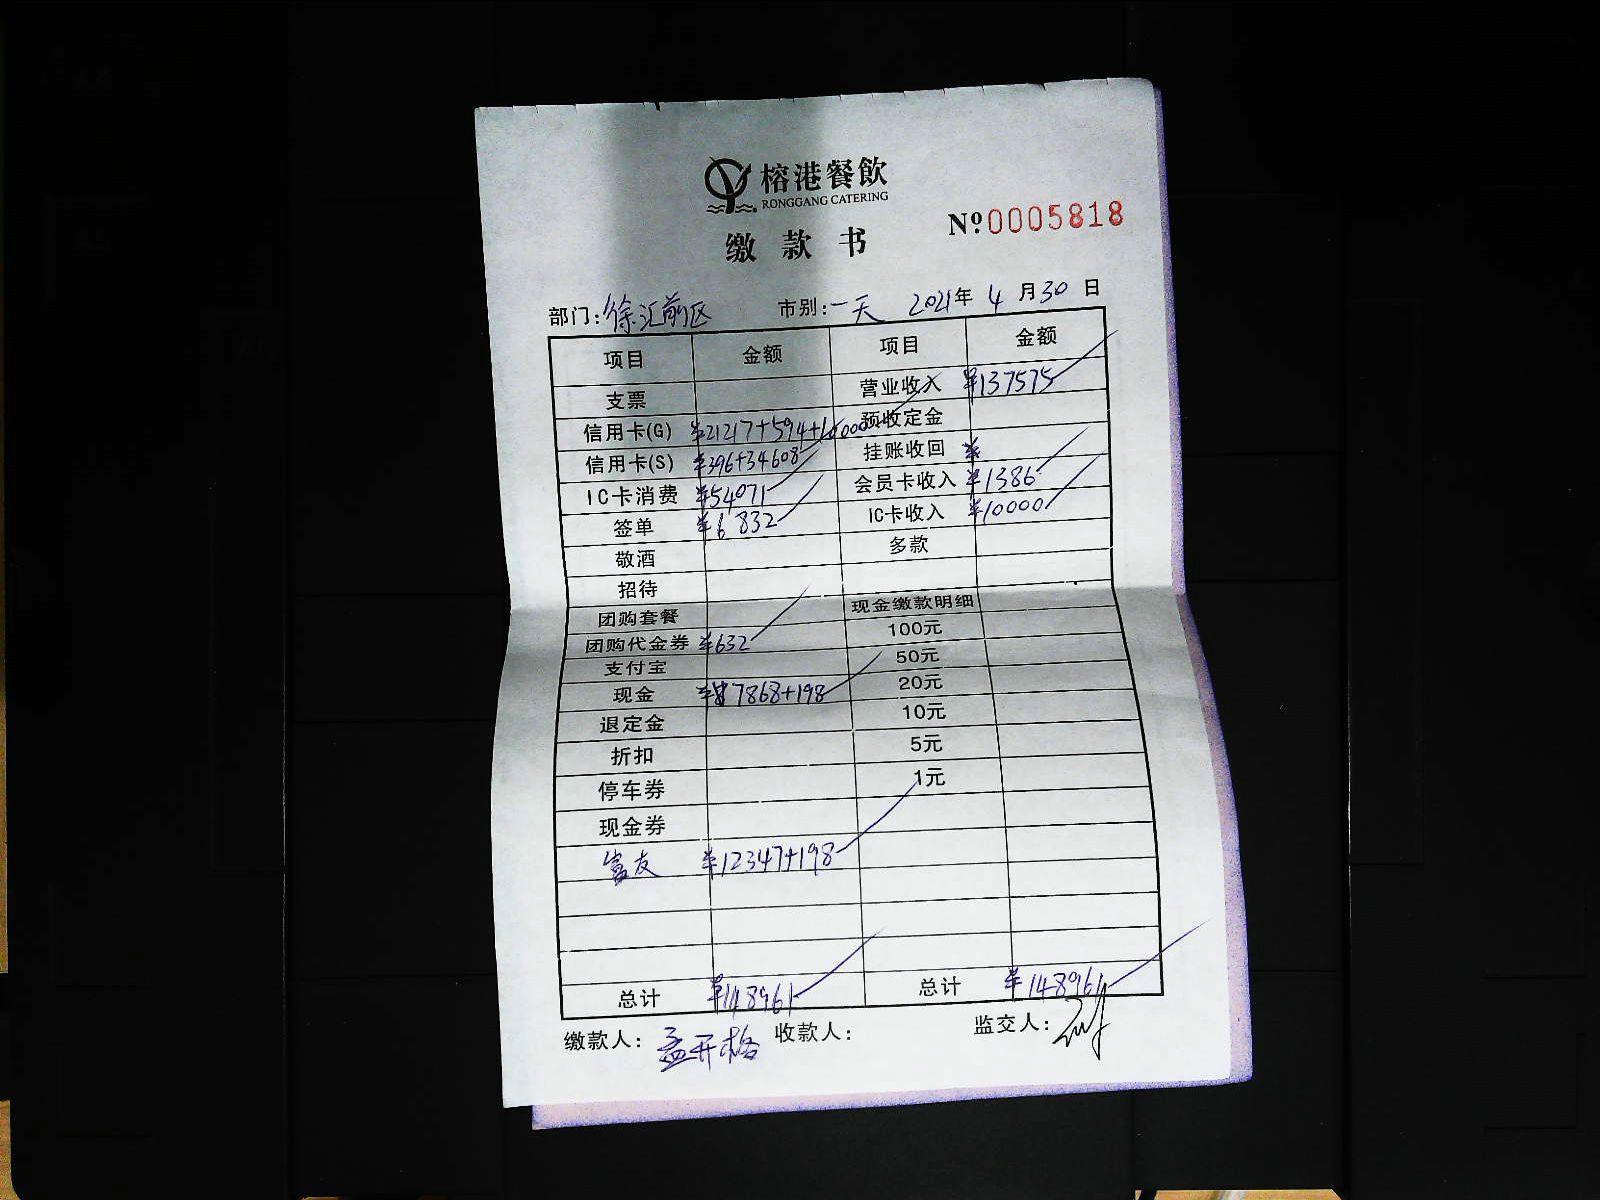 榕港餐飲
RONGGANG CATERING
缴款书
Nº0005818
部门:徐汇前区 市别:一天 2021年4月30日
项目 金额 项目 金额
支票 营业收入 ¥137575
信用卡(G) ¥21217+594+10000 预收定金
信用卡(S) ¥396+34608 挂账收回 ¥
IC卡消费 ¥54071 会员卡收入 ¥1386
签单 ¥6832 IC卡收入 ¥10000
敬酒 多款
招待
团购套餐 现金缴款明细
团购代金券 ¥632 100元
支付宝 50元
现金 ¥7868+198 20元
退定金 10元
折扣 5元
停车券 1元
现金券
富友 ¥12347+198
总计 ¥148961 总计 ¥148961
缴款人:孟开格 收款人: 监交人: